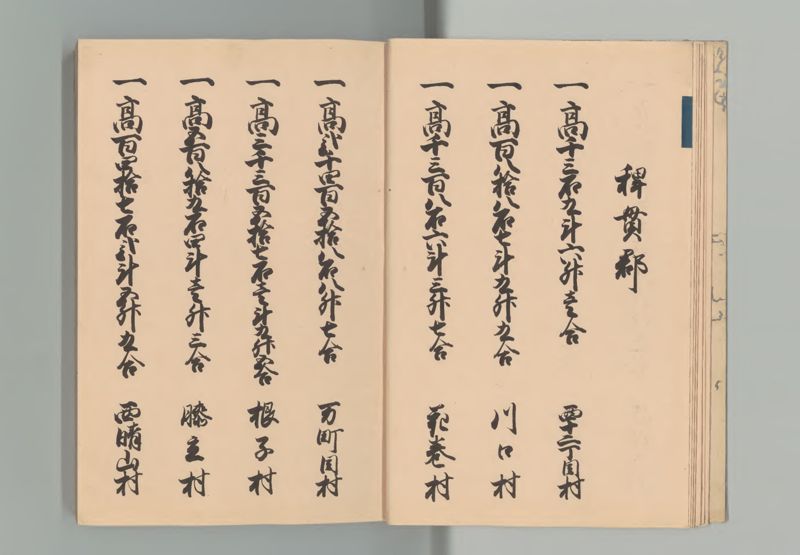 稗貫郡
一 高千三石九斗六升壱合 西十二丁目村
一 高百八拾八石七斗九升九合 川口村
一 高千三百八石六斗三升七合 花巻村
一 高弐千四百五拾八石八升七合 万町目村
一 高三千三百五拾七石壱斗九升五合 根子村
一 高五百八拾九石四斗壱升三合 膝立村
一 高百四拾七石弐斗五升九合 西晴山村